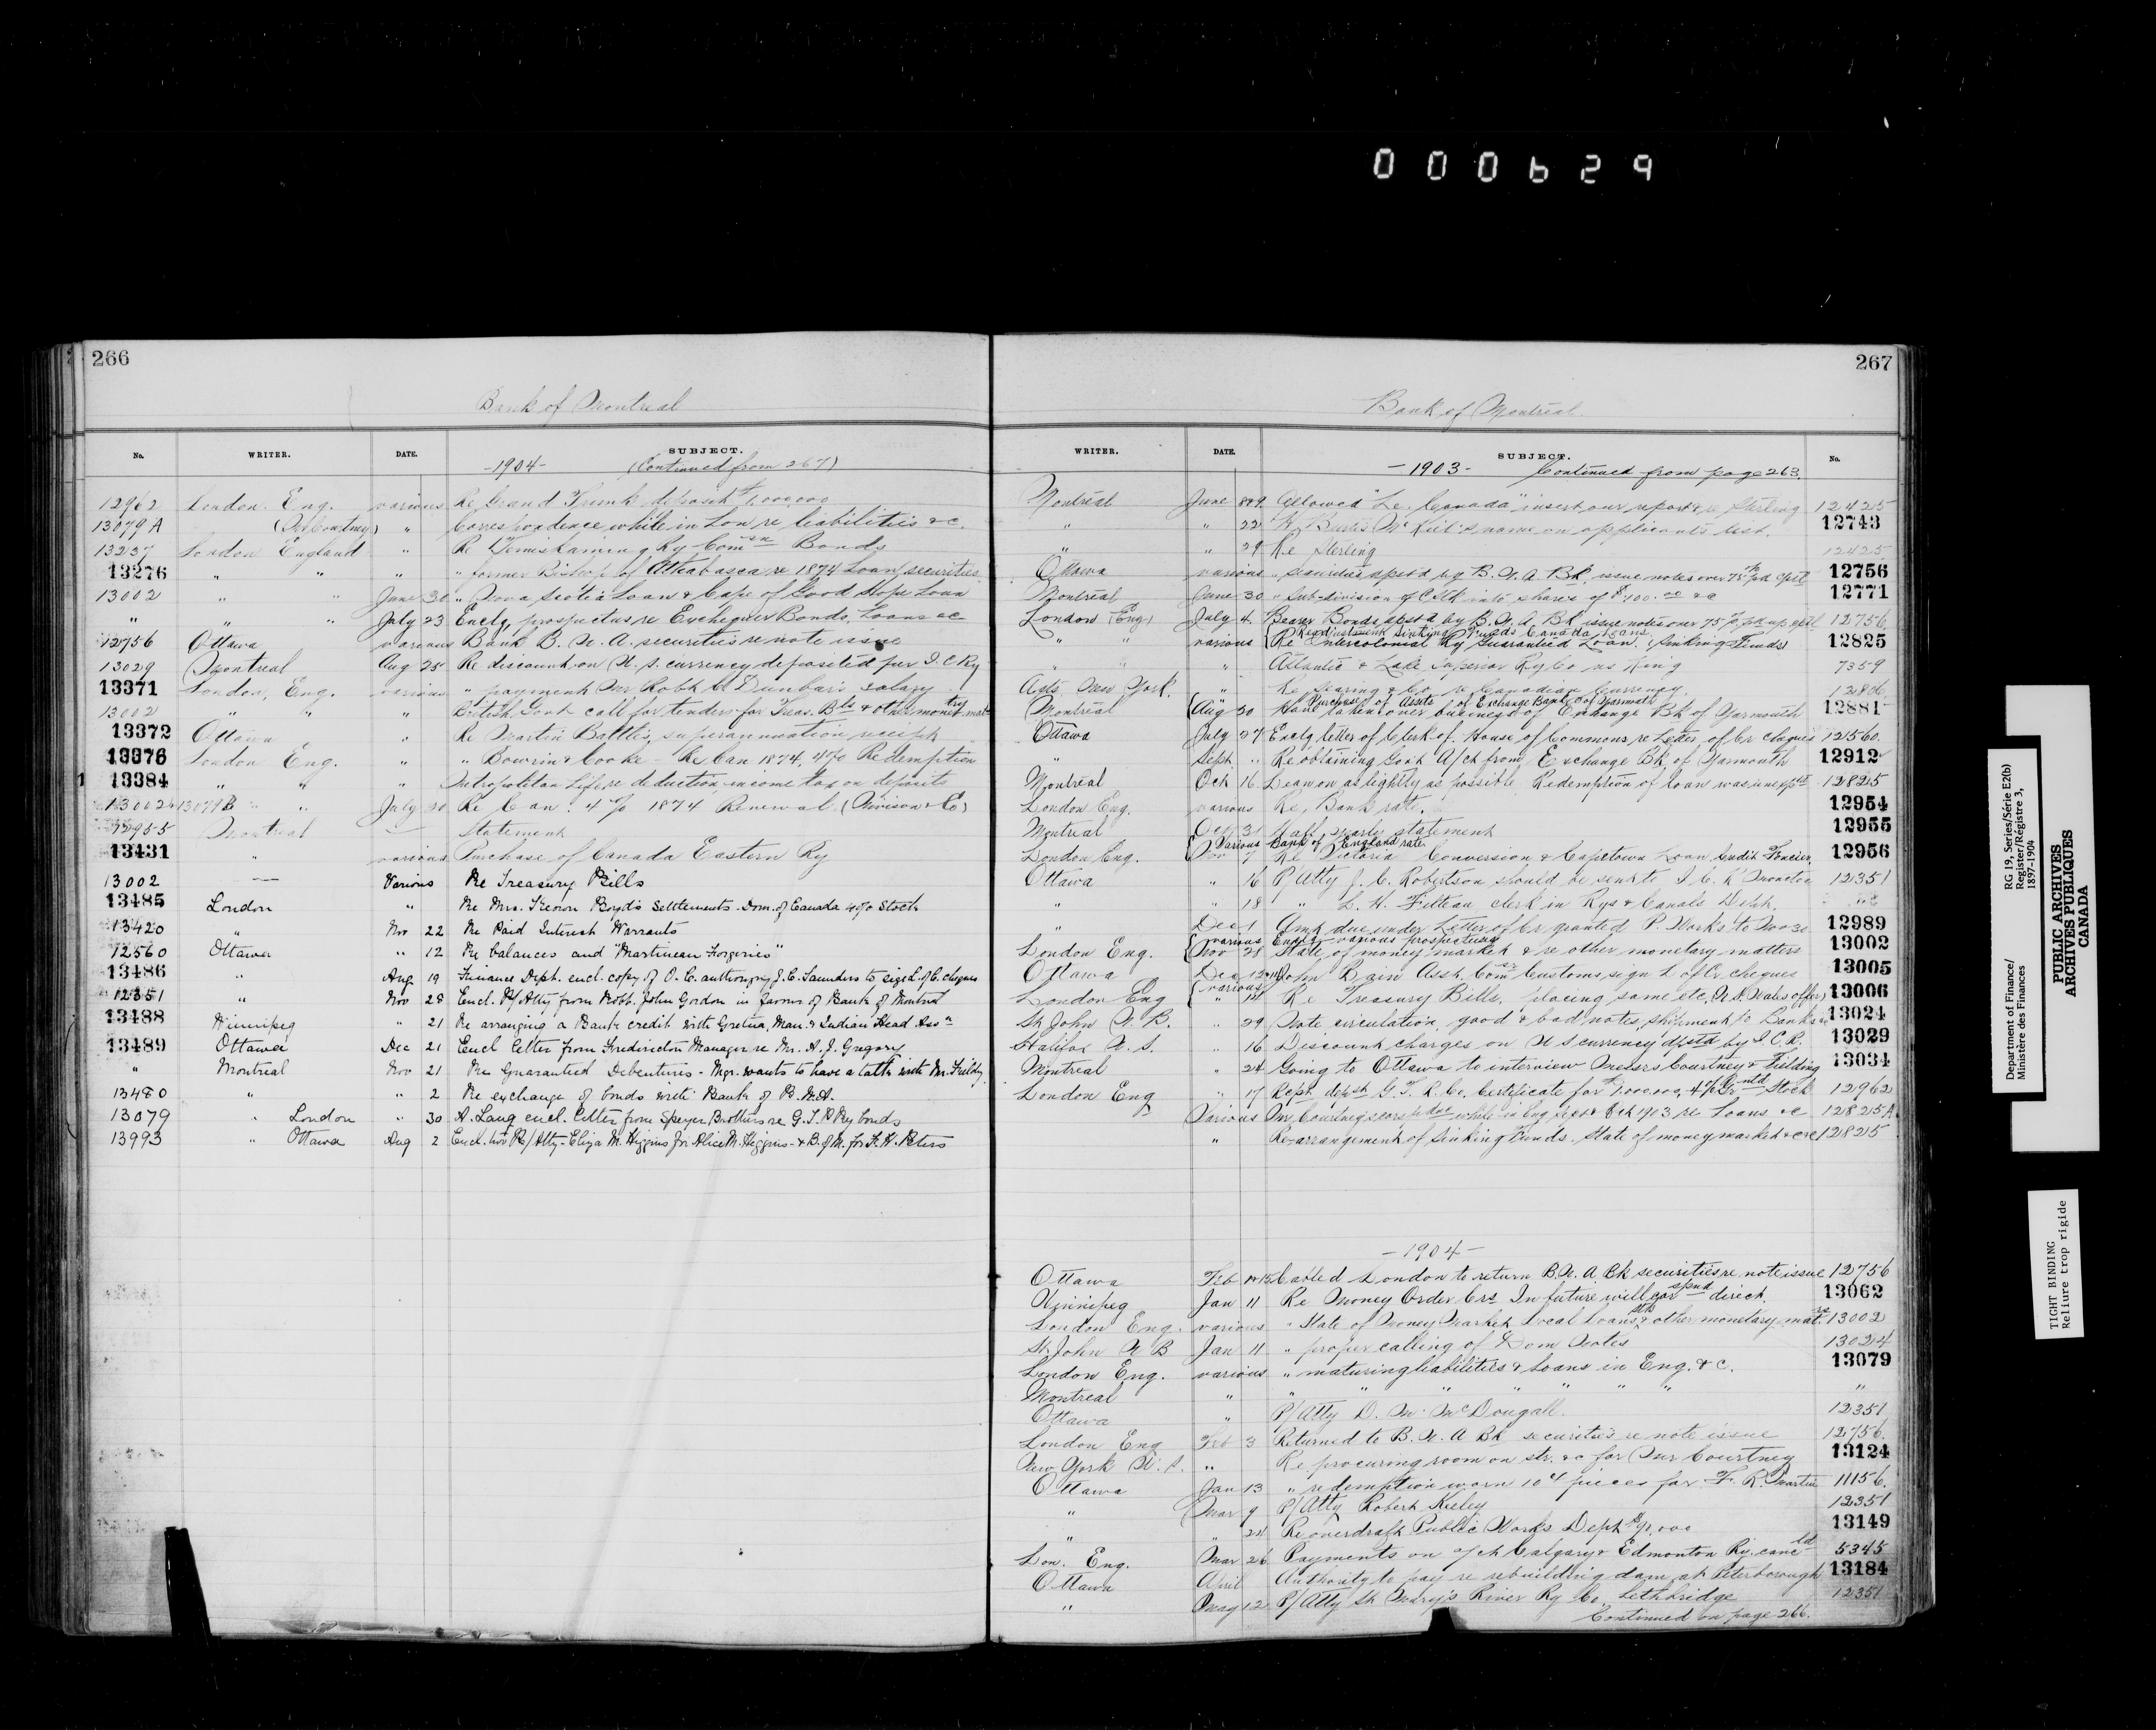 000629
266
Bank of Montreal
No. WRITER. DATE. SUBJECT.
-1904- (Continued from 267)
12962 London Eng. various Re Grand Trunk deposit $1,000,000
13079A (Mr Courtney) " Correspondence while in Lon re liabilities &c.
13237 London England " Re Temiskaming Ry Comsn Bonds
13276 " " " " former Bishop of Athabasca re 1874 Loan securities
13002 " " June 30 " Nova Scotia Loan & Cape of Good Hope Loan
" " " July 23 Enclg prospectus re Exchequer Bonds, Loans &c
12756 Ottawa various Bank B. N. A. securities re note issue
13029 Montreal Aug 25 Re discount on U. S. currency deposited per I. C Ry
13371 London, Eng. various " payment Mr Robt Dunbar's salary
13002 " " " British Govt call for tenders for Treas. Bls & other monetry mat
13372 Ottawa " Re Martin Battle's superannuation receipt
13376 London Eng. " Bowring Cooke - Re Can 1874, 4% Redemption
13384 " " Metropolitan Life re deduction income tax on deposits
13002 & 13079B " " July 30 Re Can. 4% 1874 Renewal (Nivison & Co)
12955 Montreal — Statement
13431 " various Purchase of Canada Eastern Ry
13002 — Various Re Treasury Bills
13485 London " Re Mrs. Boyd's Settlements - Dom. of Canada 4% Stock
13420 " Nov 22 Re Paid Interest Warrants
12560 Ottawa " 12 Re balances and "Martineau Forgeries"
13486 " Aug 19 Finance Dept. encl. copy of O. C. authorizing J. C. Saunders to sign L. of C. cheques
12351 " Nov 28 Encl. P/Atty from Robt. John Gordon in favour of Bank of Montreal
13488 Winnipeg " 21 Re arranging a Bank credit with Gretna, Man. & Indian Head Assa
13489 Ottawa Dec 21 Encl letter from Fredericton Manager re Mr. A. J. Gregory
" Montreal Nov 21 Re Guaranteed Debentures - Mgr. wants to have a talk with Mr. Fielding
13480 " " 2 Re exchange of bonds with Bank of B.N.A.
13079 " London " 30 A. Lang encl. letter from Speyer Brothers re G. T. P Ry bonds
13993 " Ottawa Aug 2 Encl. two P/Atty - Eliza M. Higgins for Alice M. Higgins - & B. of M. for F. H. Peters
267
Bank of Montreal
WRITER. DATE. SUBJECT. No.
-1903- Continued from page 263.
Montreal June 8&9 Allowed "Le Canada" insert our report & re Sterling 12425
" " 22 name on applicants list. 12743
" " 29 Re Sterling 12425
Ottawa various " securities depst'd by B. N. A. Bk. issue notes over 75% pd cptl 12756
Montreal June 30 " Sub-division of C Stk into shares of $100.00 &c 12771
London (Eng) July 4 Bearer Bonds depst'd by B. N. A. Bk issue notes over 75% pd up cptl 12756
Readjustment Sinking Funds Canada Loans
" " various Re Intercolonial Ry Guaranteed Loan (Sinking Funds) 12825
" " " Atlantic & Lake Superior Ry Co vs King 7359
Agts New York. " Re Baring & Co. re Canadian Currency. 12806
" Purchase of Assets of Exchange Bank of Yarmouth
Montreal Aug 20 Have taken over business of Exchange Bk of Yarmouth 12881
Ottawa July 27 Enclg letter of Clerk of House of Commons re Letter of Cr cheques 12560.
" Sept " Re obtaining Govt A/ct from Exchange Bk of Yarmouth 12912
Montreal Oct 16 Draw on as lightly as possible, Redemption of loan was unexptd 12825
London Eng. various Re Bank rate. 12954
Montreal Oct 31 Half yearly statement 12955
Various Bank of England rate.
London Eng. Nov 7 Re Victoria Conversion & Capetown Loan Credit Foncier. 12956
Ottawa " 16 P/Atty J. C. Robertson should be sent to I. C. R Moncton 12351
" " 18 " L. H. Filteau clerk in Rys & Canals Dept. "
" Dec 1 Amt due under Letter of Cr granted P. Works to Nov 30 12989
various Enclg various prospectuses
London Eng. Nov 28 State of money market & re other monetary matters 13002
Ottawa Dec 12 John Bain Asst. Comsr Customs sign L of Cr cheques 13005
various
London Eng " 14 Re Treasury Bills, placing same etc. (N. S. Wales offer) 13006
St John N. B. " 29 Note circulation, good & bad notes, shipment to Banks &c 13024
Halifax N. S. " 16 Discount charges on U S currency distd by I. C. R. 13029
Montreal " 24 Going to Ottawa to interview Messrs Courtney & Fielding 13034
London Eng " 17 Rept depst G. T. R. Co. Certificate for $1,000,000, 4% Grntd Stock 12962
Various Mr Courtney's corspdnc while in Eng Sept & Oct 1903 re Loans &c 12825A
" Re-arrangement of Sinking Funds. State of money market &c &c 12825
-1904-
Ottawa Feb 12&15 Cabled London to return B. N. A. Bk securities re note issue 12756
Winnipeg Jan 11 Re Money Order Crs In future will corspnd direct 13062
London Eng. various " State of Money Market, Local Loans Stk & other monetary matrs 13002
St. John N B Jan 11 " proper calling of Dom Notes 13024
London Eng. various " maturing liabilities & loans in Eng. & c. 13079
Montreal " " " " " " " " "
Ottawa " P/Atty D. M. McDougall. 12351
London Eng Feb 3 Returned to B. N. A Bk securities re note issue 12756.
New York U. S. " Re procuring room on str. &c for Mr Courtney 13124
Ottawa Jan 13 " redemption worn 10 ¢ pieces for F. R. Martin 11156.
" Mar 9 P/Atty Robert Kieley 12351
" " 24 Re overdraft Public Works Dept 13149
Lon. Eng. Mar 26 Payments on a/ct Calgary & Edmonton Ry. cancld 5345
Ottawa April Authority to pay re rebuilding dam at Peterborough 13184
" May 12 P/Atty St Mary's River Ry Co. Lethbridge 12351
Continued on page 266.
Department of Finance/
Ministère des Finances
RG 19, Series/Série E2(b)
Register/Régistre 3,
1897-1904
PUBLIC ARCHIVES
ARCHIVES PUBLIQUES
CANADA
TIGHT BINDING
Reliure trop rigide